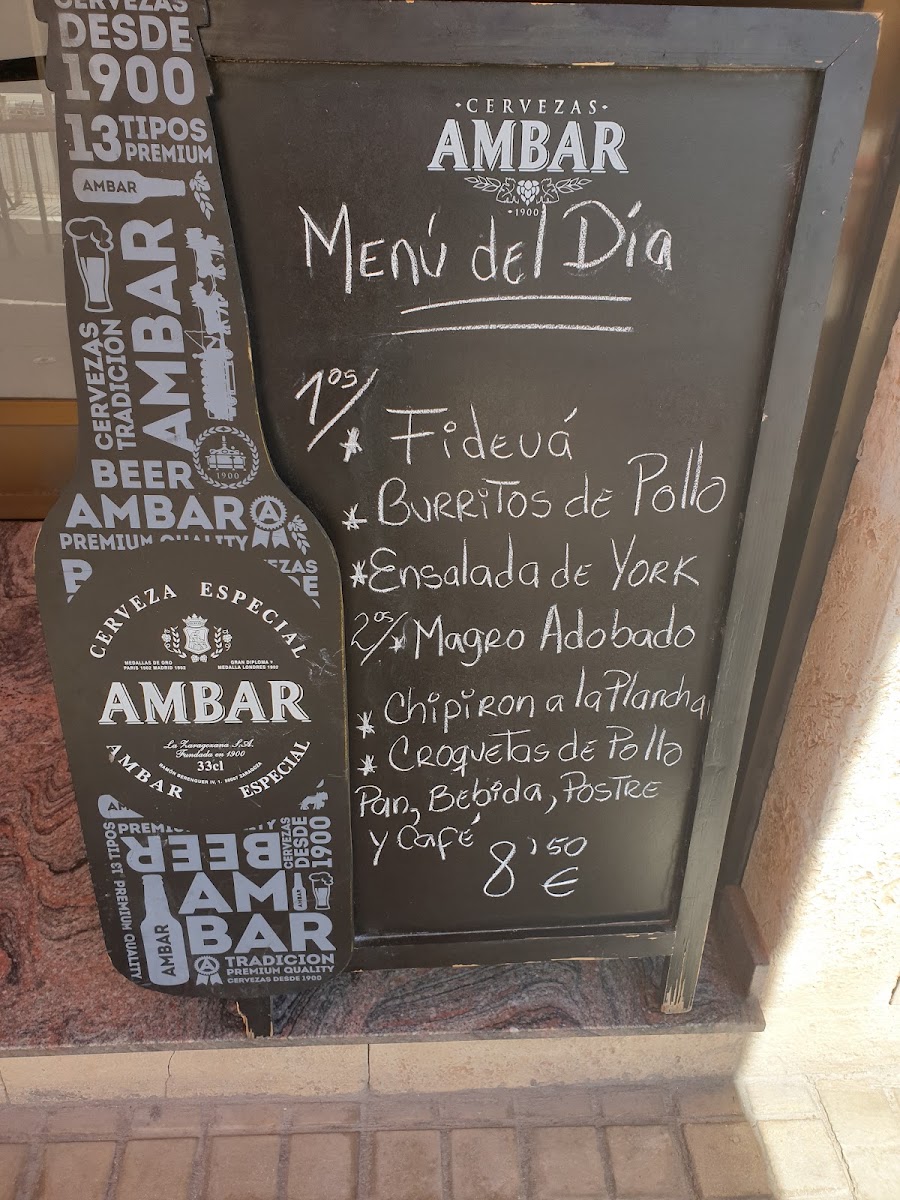 CERVEZAS
DESDE
1900
13 TIPOS
PREMIUM
AMBAR
AMBAR
CERVEZAS
TRADICION
1900
BEER
AMBAR
PREMIUM QUALITY
CERVEZA ESPECIAL
MEDALLAS DE ORO
PARIS 1902 MADRID 1952
GRAN DIPLOMA Y
MEDALLA LONDRES 1902
AMBAR
La Zaragozana S.A.
Fundada en 1900
33cl
RAMÓN BERENGUER IV, 1. 50007 ZARAGOZA
AMBAR ESPECIAL
BEER
CERVEZAS
DESDE
1900
13 TIPOS
PREMIUM QUALITY
AMBAR
AM
BAR
AMBAR
TRADICION
PREMIUM QUALITY
CERVEZAS DESDE 1900
·CERVEZAS·
AMBAR
·1900·
Menú del Día
1os/
* Fideuá
* Burritos de Pollo
* Ensalada de York
2os/* Magro Adobado
* Chipiron a la Plancha
* Croquetas de Pollo
Pan, Bebida, Postre
y Café
8'50
€